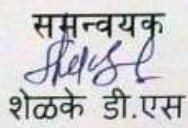 समन्वयक
शेळके डी.एस